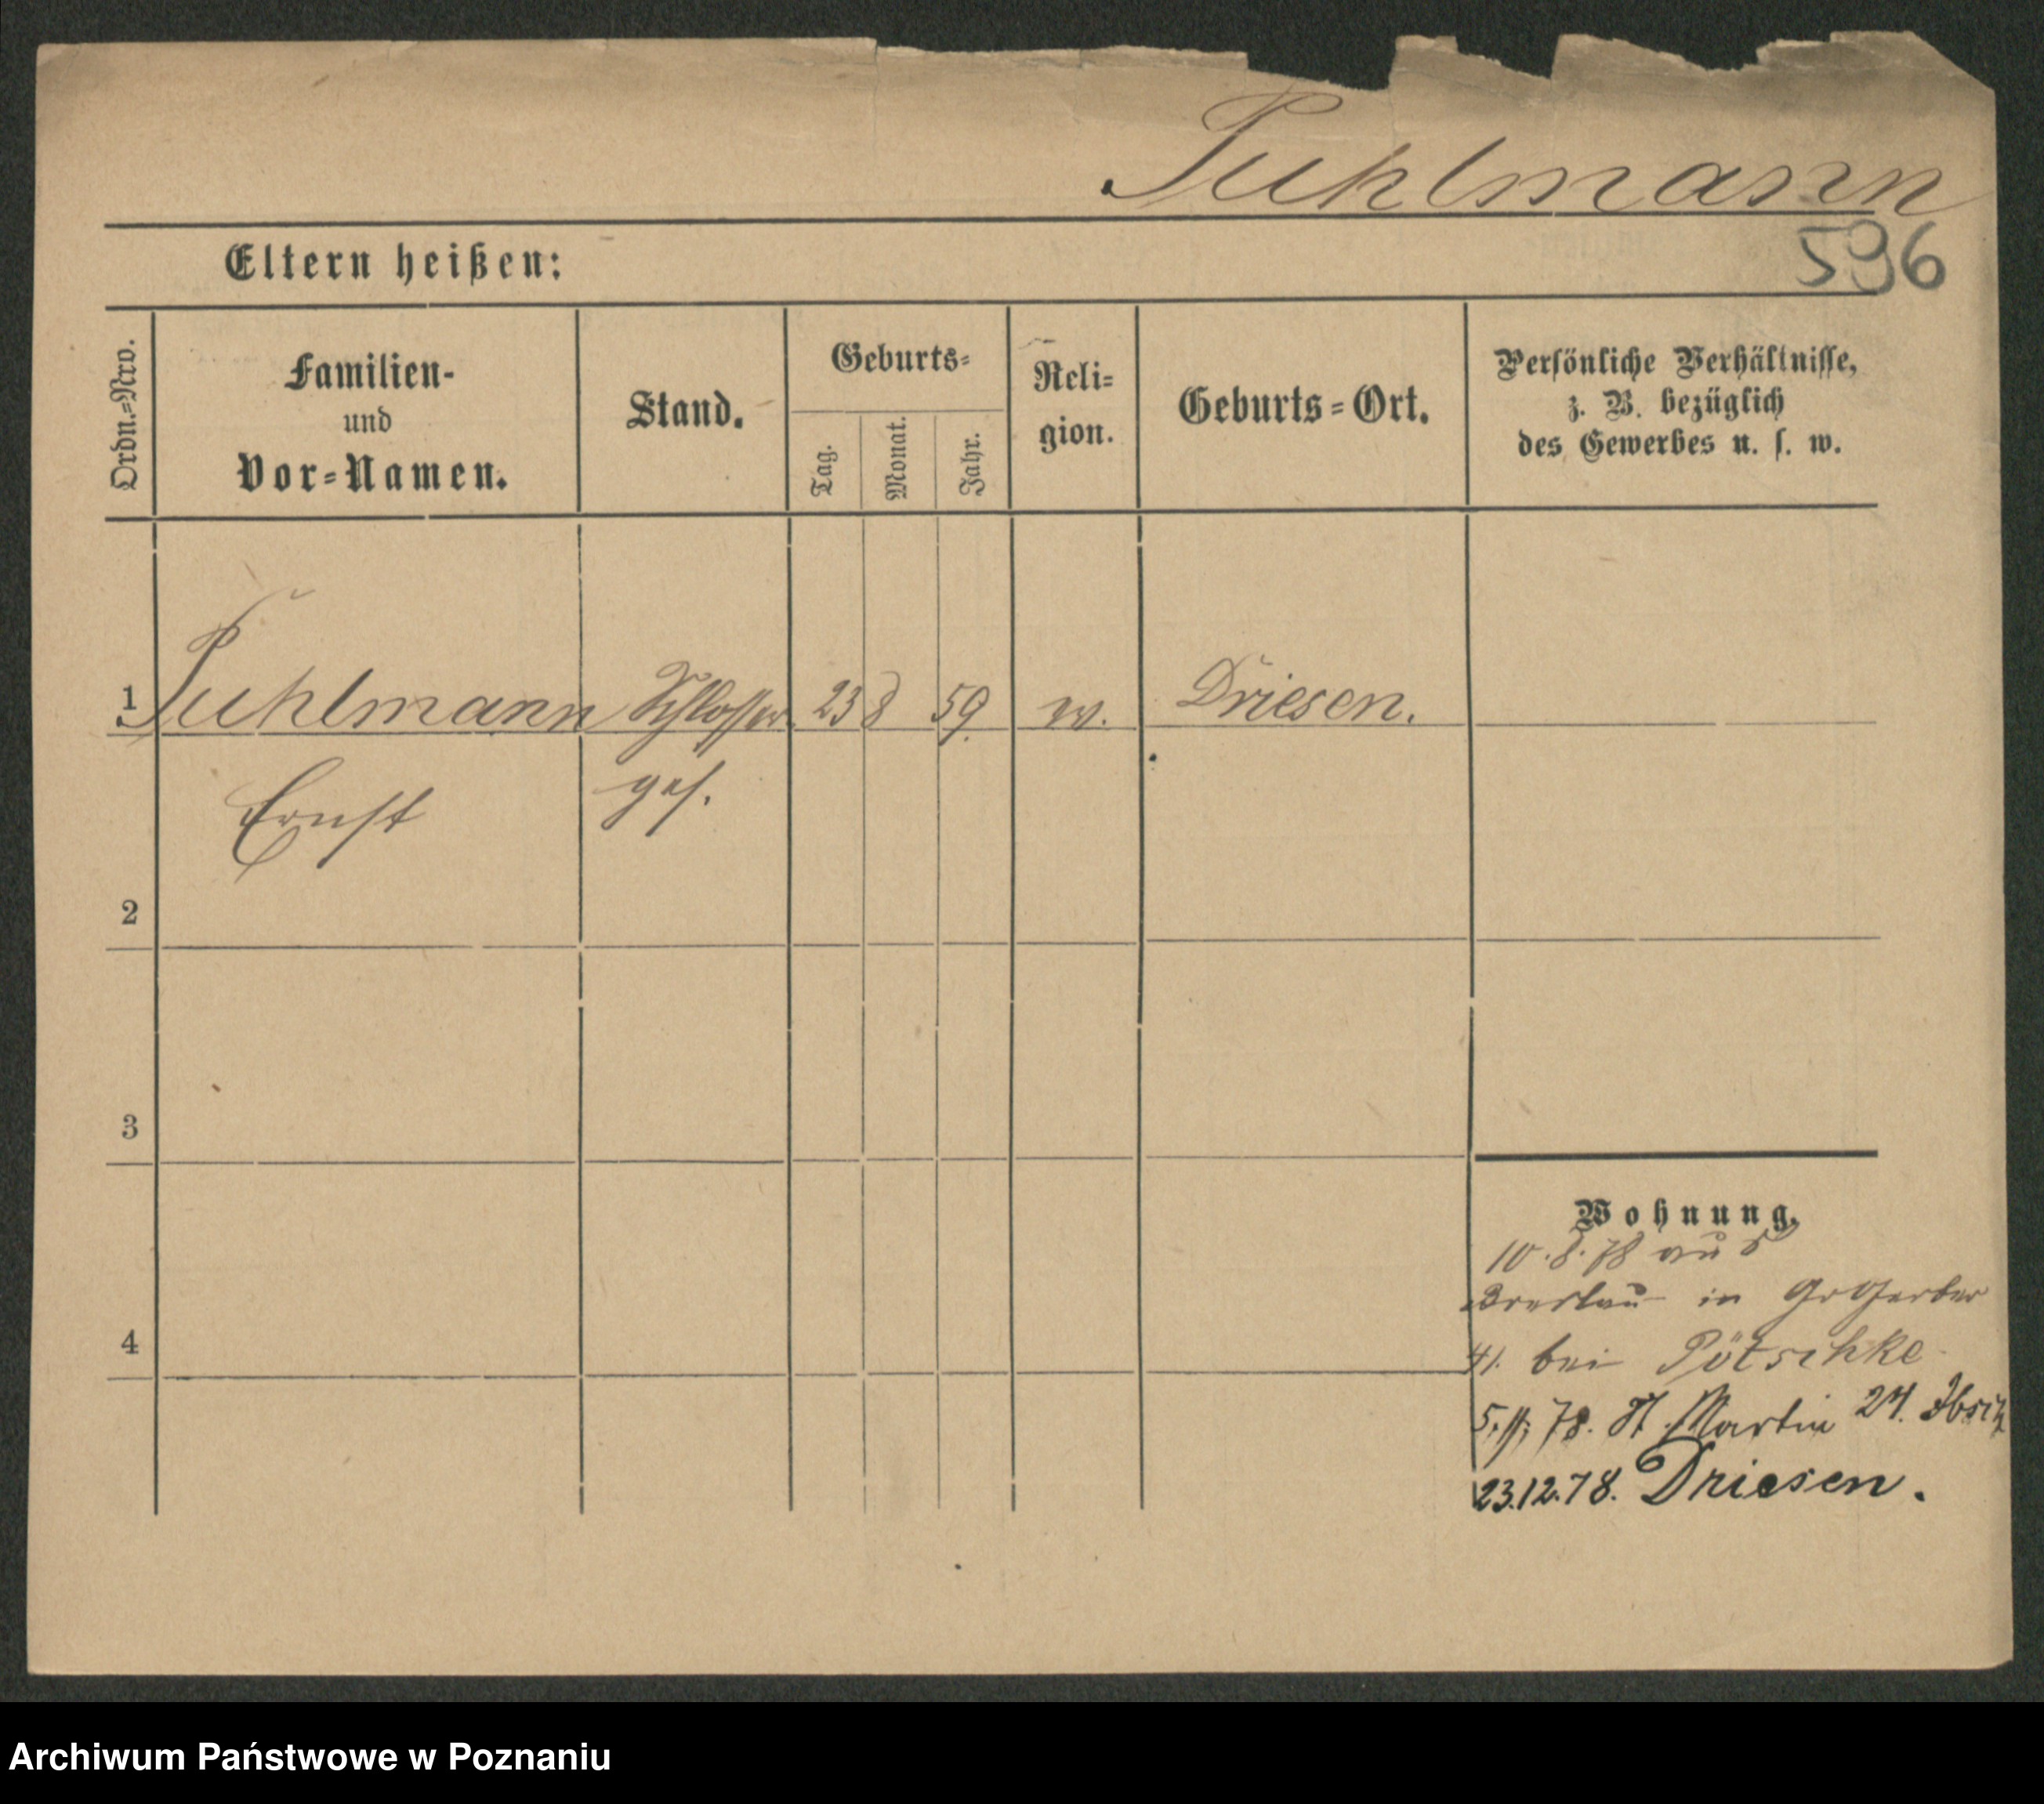 Puhlmann
596
Eltern heißen:
Ordn.=Nro.
Familien-
und
Vor=Namen.
Stand.
Geburts=
Tag.
Monat.
Jahr.
Reli=
gion.
Geburts=Ort.
Persönliche Verhältnisse,
z. B. bezüglich
des Gewerbes u. s. w.
1 Puhlmann Schlosser 23 8 59 Driesen.
Ernst ges.
2
3
4
Wohnung.
10.8.78 aus
Breslau in Gr Gerber
41. bei Pötschke
5. 78. St. Martin 24.
23.12.78. Driesen.
Archiwum Państwowe w Poznaniu